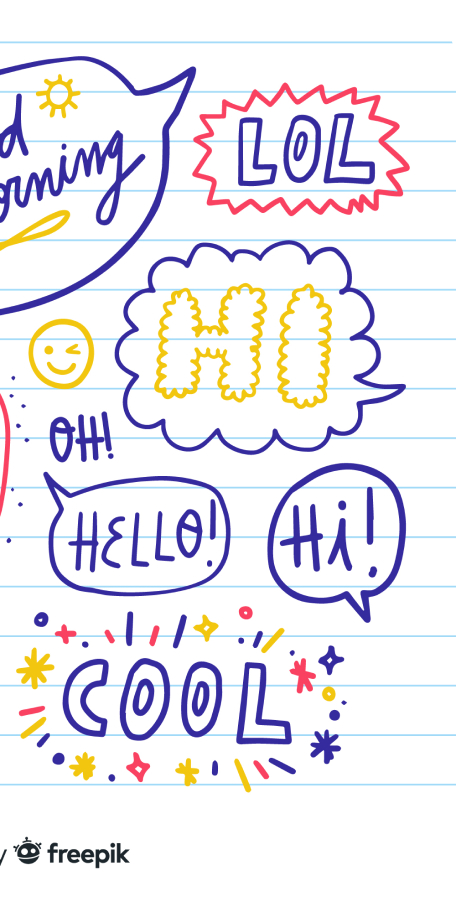 d
orning
LOL
HI
OH!
HELLO!
Hi!
COOL
y freepik